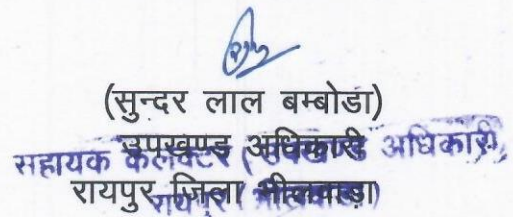 (सुन्दर लाल बम्बोडा)
उपखण्ड अधिकारी
सहायक कलेक्टर ( उपखण्ड अधिकारी,
रायपुर जिला भीलवाड़ा
रायपुर ( भीलवाड़ा)